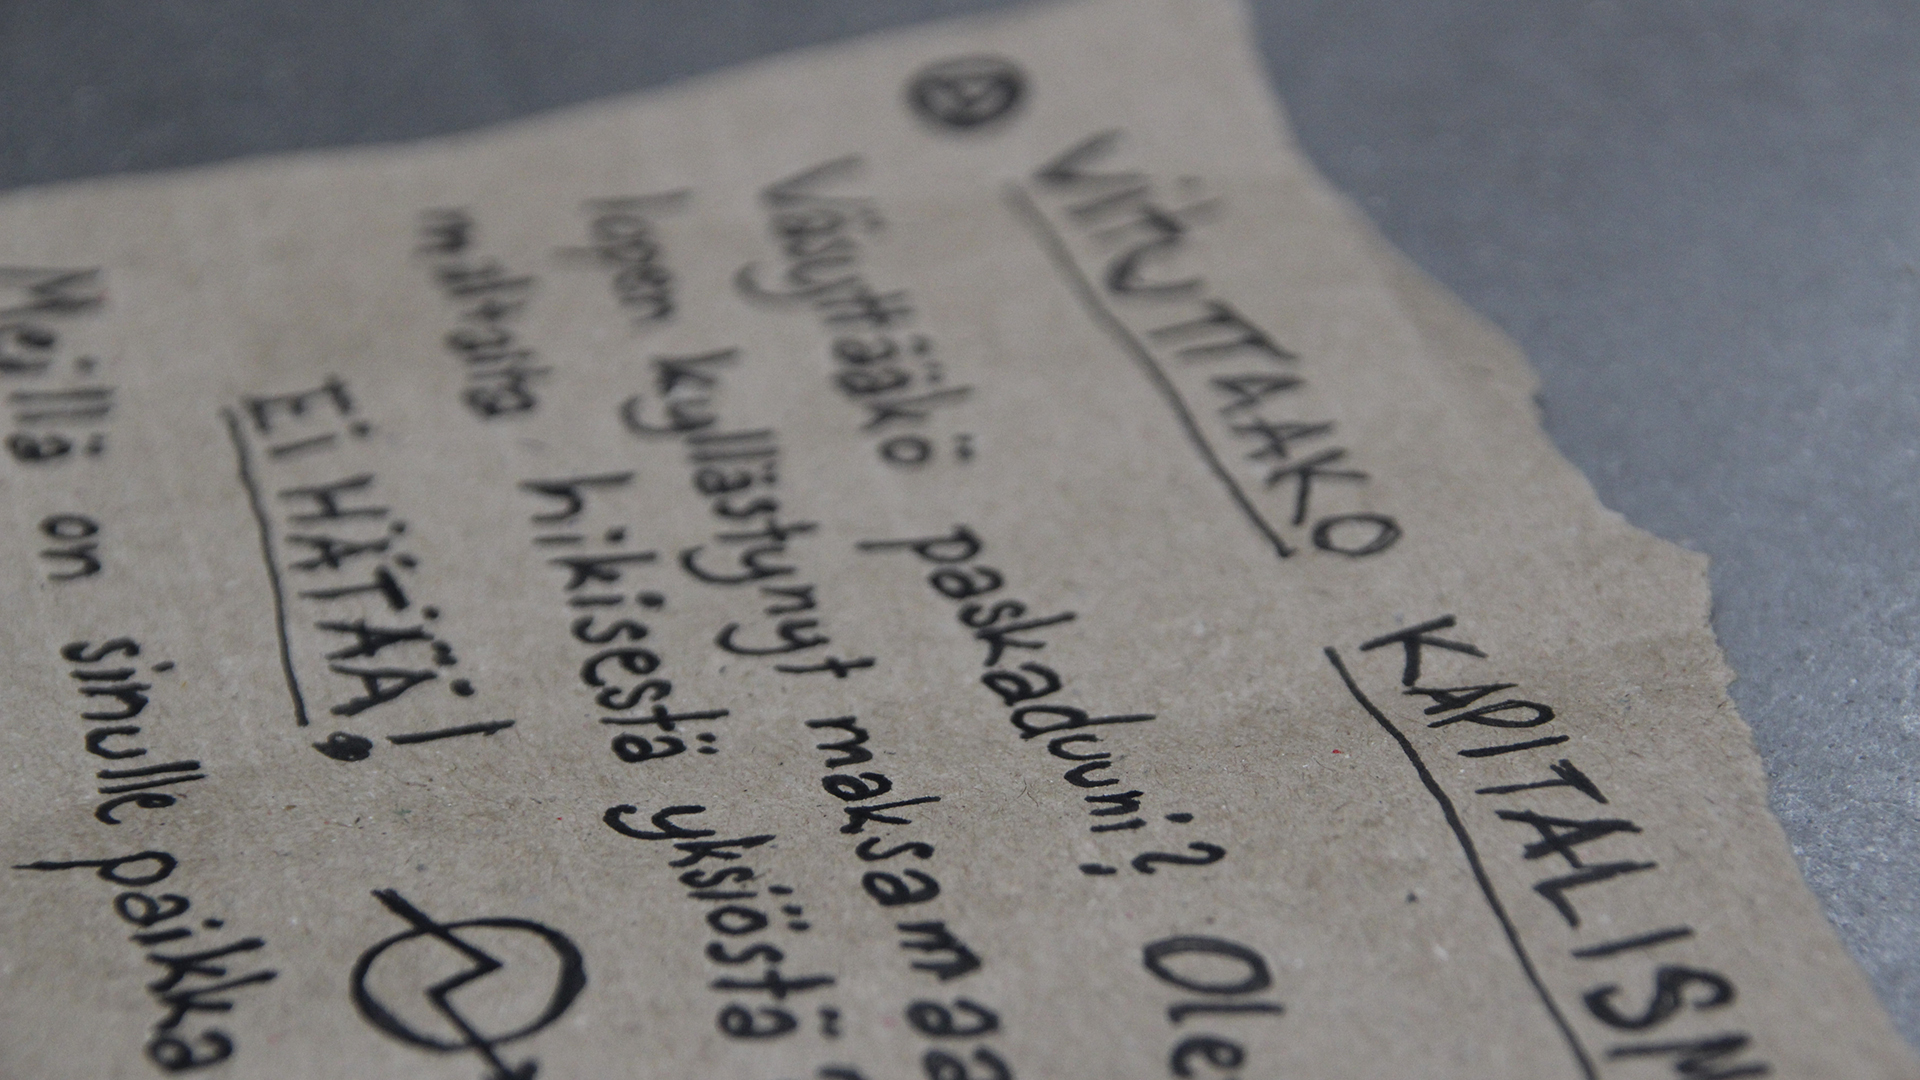 VITUTTAAKO KAPITALISM
Väsyttääkö paskaduuni? Ole
lopen kyllästynyt maksamaa
maltaita hikisestä yksiöstä
Ei HÄTÄÄ!
Meillä on sinulle paikka